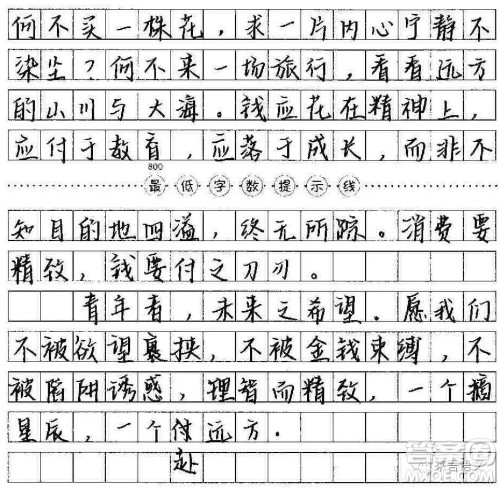 何不买一株花，求一片内心宁静不
染尘？何不来一场旅行，看看远方
的山川与大海。钱应花在精神上，
应付于教育，应落于成长，而非不
800
最低字数提示线
知目的地四溢，终无所踪。消费要
精致，钱要付之刀刃。
青年者，未来之希望。愿我们
不被欲望裹挟，不被金钱束缚，不
被陷阱诱惑，理智而精致，一个摘
星辰，一个付远方．
赴
答案圈
MXQE.COM